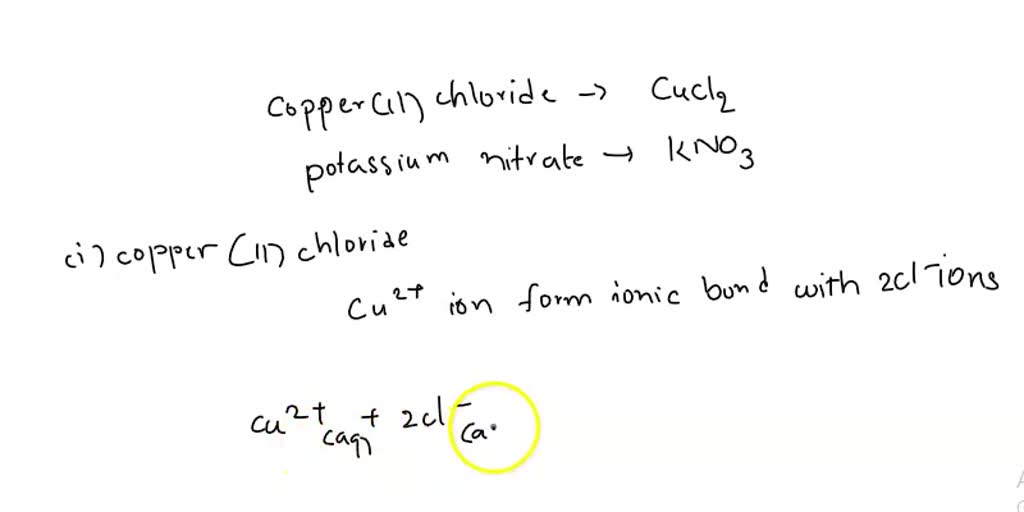 copper(11) chloride → CuCl2
potassium nitrate → KNO3
(i) copper (11) chloride
Cu2+ ion form ionic bond with 2Cl- ions
Cu2+(aq) + 2Cl-(a